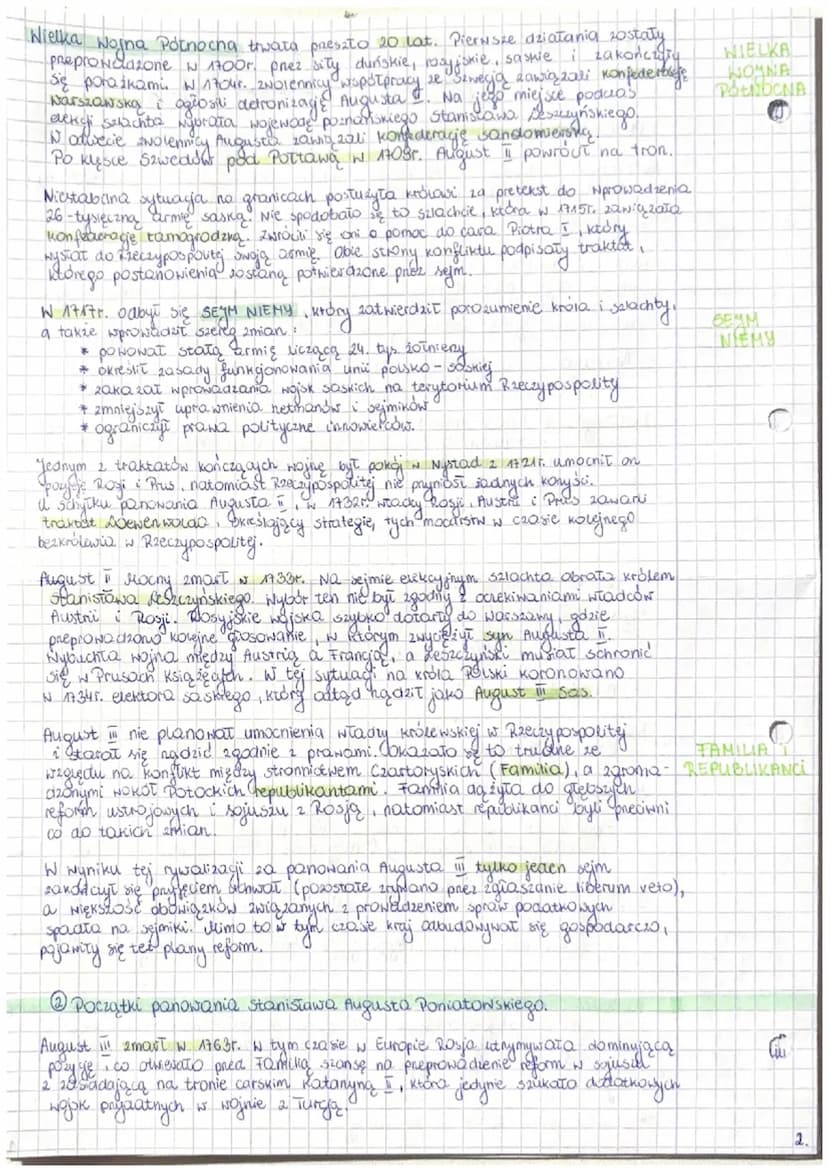 Wielka Wojna Północna trwała przeszło 20 lat. Pierwsze działania zostały
przeprowadzone w 1700r. przez siły duńskie, rosyjskie, saskie i zakończyły
się porażkami. W 1704r. zwolennicy współpracy ze Szwecją zawiązali konfederację
warszawską i ogłosili detronizację Augusta II. Na jego miejsce podczas
elekcji szlachta wybrała wojewodę poznańskiego Stanisława Leszczyńskiego.
W odwecie zwolennicy Augusta zawiązali konfederację sandomierską.
Po klęsce Szwedów pod Połtawą w 1709r. August II powrócił na tron.
WIELKA
WOJNA
PÓŁNOCNA
Niestabilna sytuacja na granicach posłużyła królowi za pretekst do wprowadzenia
26-tysięczną armię saską. Nie spodobało się to szlachcie, która w 1715r. zawiązała
konfederację tarnogrodzką. Zwrócili się oni o pomoc do cara Piotra I, który
wysłał do Rzeczypospolitej swoją armię. Obie strony konfliktu podpisały traktat,
którego postanowienia zostaną potwierdzone przez sejm.
W 1717r. odbył się SEJM NIEMY, który zatwierdził porozumienie króla i szlachty,
a także wprowadził szereg zmian:
* powołał stałą armię liczącą 24. tys. żołnierzy
* określił zasady funkcjonowania unii polsko-saskiej
* zakazał wprowadzania wojsk saskich na terytorium Rzeczypospolity
* zmniejszył uprawnienia hetmanów i sejmików
* ograniczył prawa polityczne innowierców.
SEJM
NIEMY
Jednym z traktatów kończących wojnę był pokój w Nystad z 1721r. umocnił on
pozycję Rosji i Prus, natomiast Rzeczypospolitej nie przyniósł żadnych korzyści.
U schyłku panowania Augusta II, w 1732r. władcy Rosji, Austrii i Prus zawarli
traktat Loewenwolda, określający strategię, tych mocarstw w czasie kolejnego
bezkrólewia w Rzeczypospolitej.
August II Mocny zmarł w 1733r. Na sejmie elekcyjnym szlachta obrała królem
Stanisława Leszczyńskiego. Wybór ten nie był zgodny z oczekiwaniami władców
Austrii i Rosji. Rosyjskie wojska szybko dotarły do Warszawy, gdzie
przeprowadzono kolejne głosowanie, w którym zwyciężył syn Augusta II.
Wybuchła wojna między Austrią a Francją, a Leszczyński musiał schronić
się w Prusach Książęcych. W tej sytuacji na króla Polski koronowano
w 1734r. elektora saskiego, który odtąd rządził jako August III Sas.
August III nie planował umocnienia władzy królewskiej w Rzeczypospolitej
i starał się rządzić zgodnie z prawami. Okazało się to trudne ze
względu na konflikt między stronnictwem Czartoryskich (Familia), a zgroma-
dzonymi wokół Potockich republikantami. Familia dążyła do głębszych
reform ustrojowych i sojuszu z Rosją, natomiast republikanci byli przeciwni
co do takich zmian.
FAMILIA I
REPUBLIKANCI
W wyniku tej rywalizacji za panowania Augusta III tylko jeden sejm
zakończył się przyjęciem uchwał (pozostałe zrywano przez zgłaszanie liberum veto),
a większość obowiązków związanych z prowadzeniem spraw podatkowych
spadła na sejmiki. Mimo to w tym czasie kraj odbudowywał się gospodarczo,
pojawiły się też plany reform.
② Początki panowania Stanisława Augusta Poniatowskiego.
August III zmarł w 1763r. W tym czasie w Europie Rosja utrzymywała dominującą
pozycję, co otwierało przed Familią szansę na przeprowadzenie reform w sojuszu
z zasiadającą na tronie carskim Katarzyną II, która jedynie szukała dodatkowych
wojsk przydatnych w wojnie z Turcją.
2.